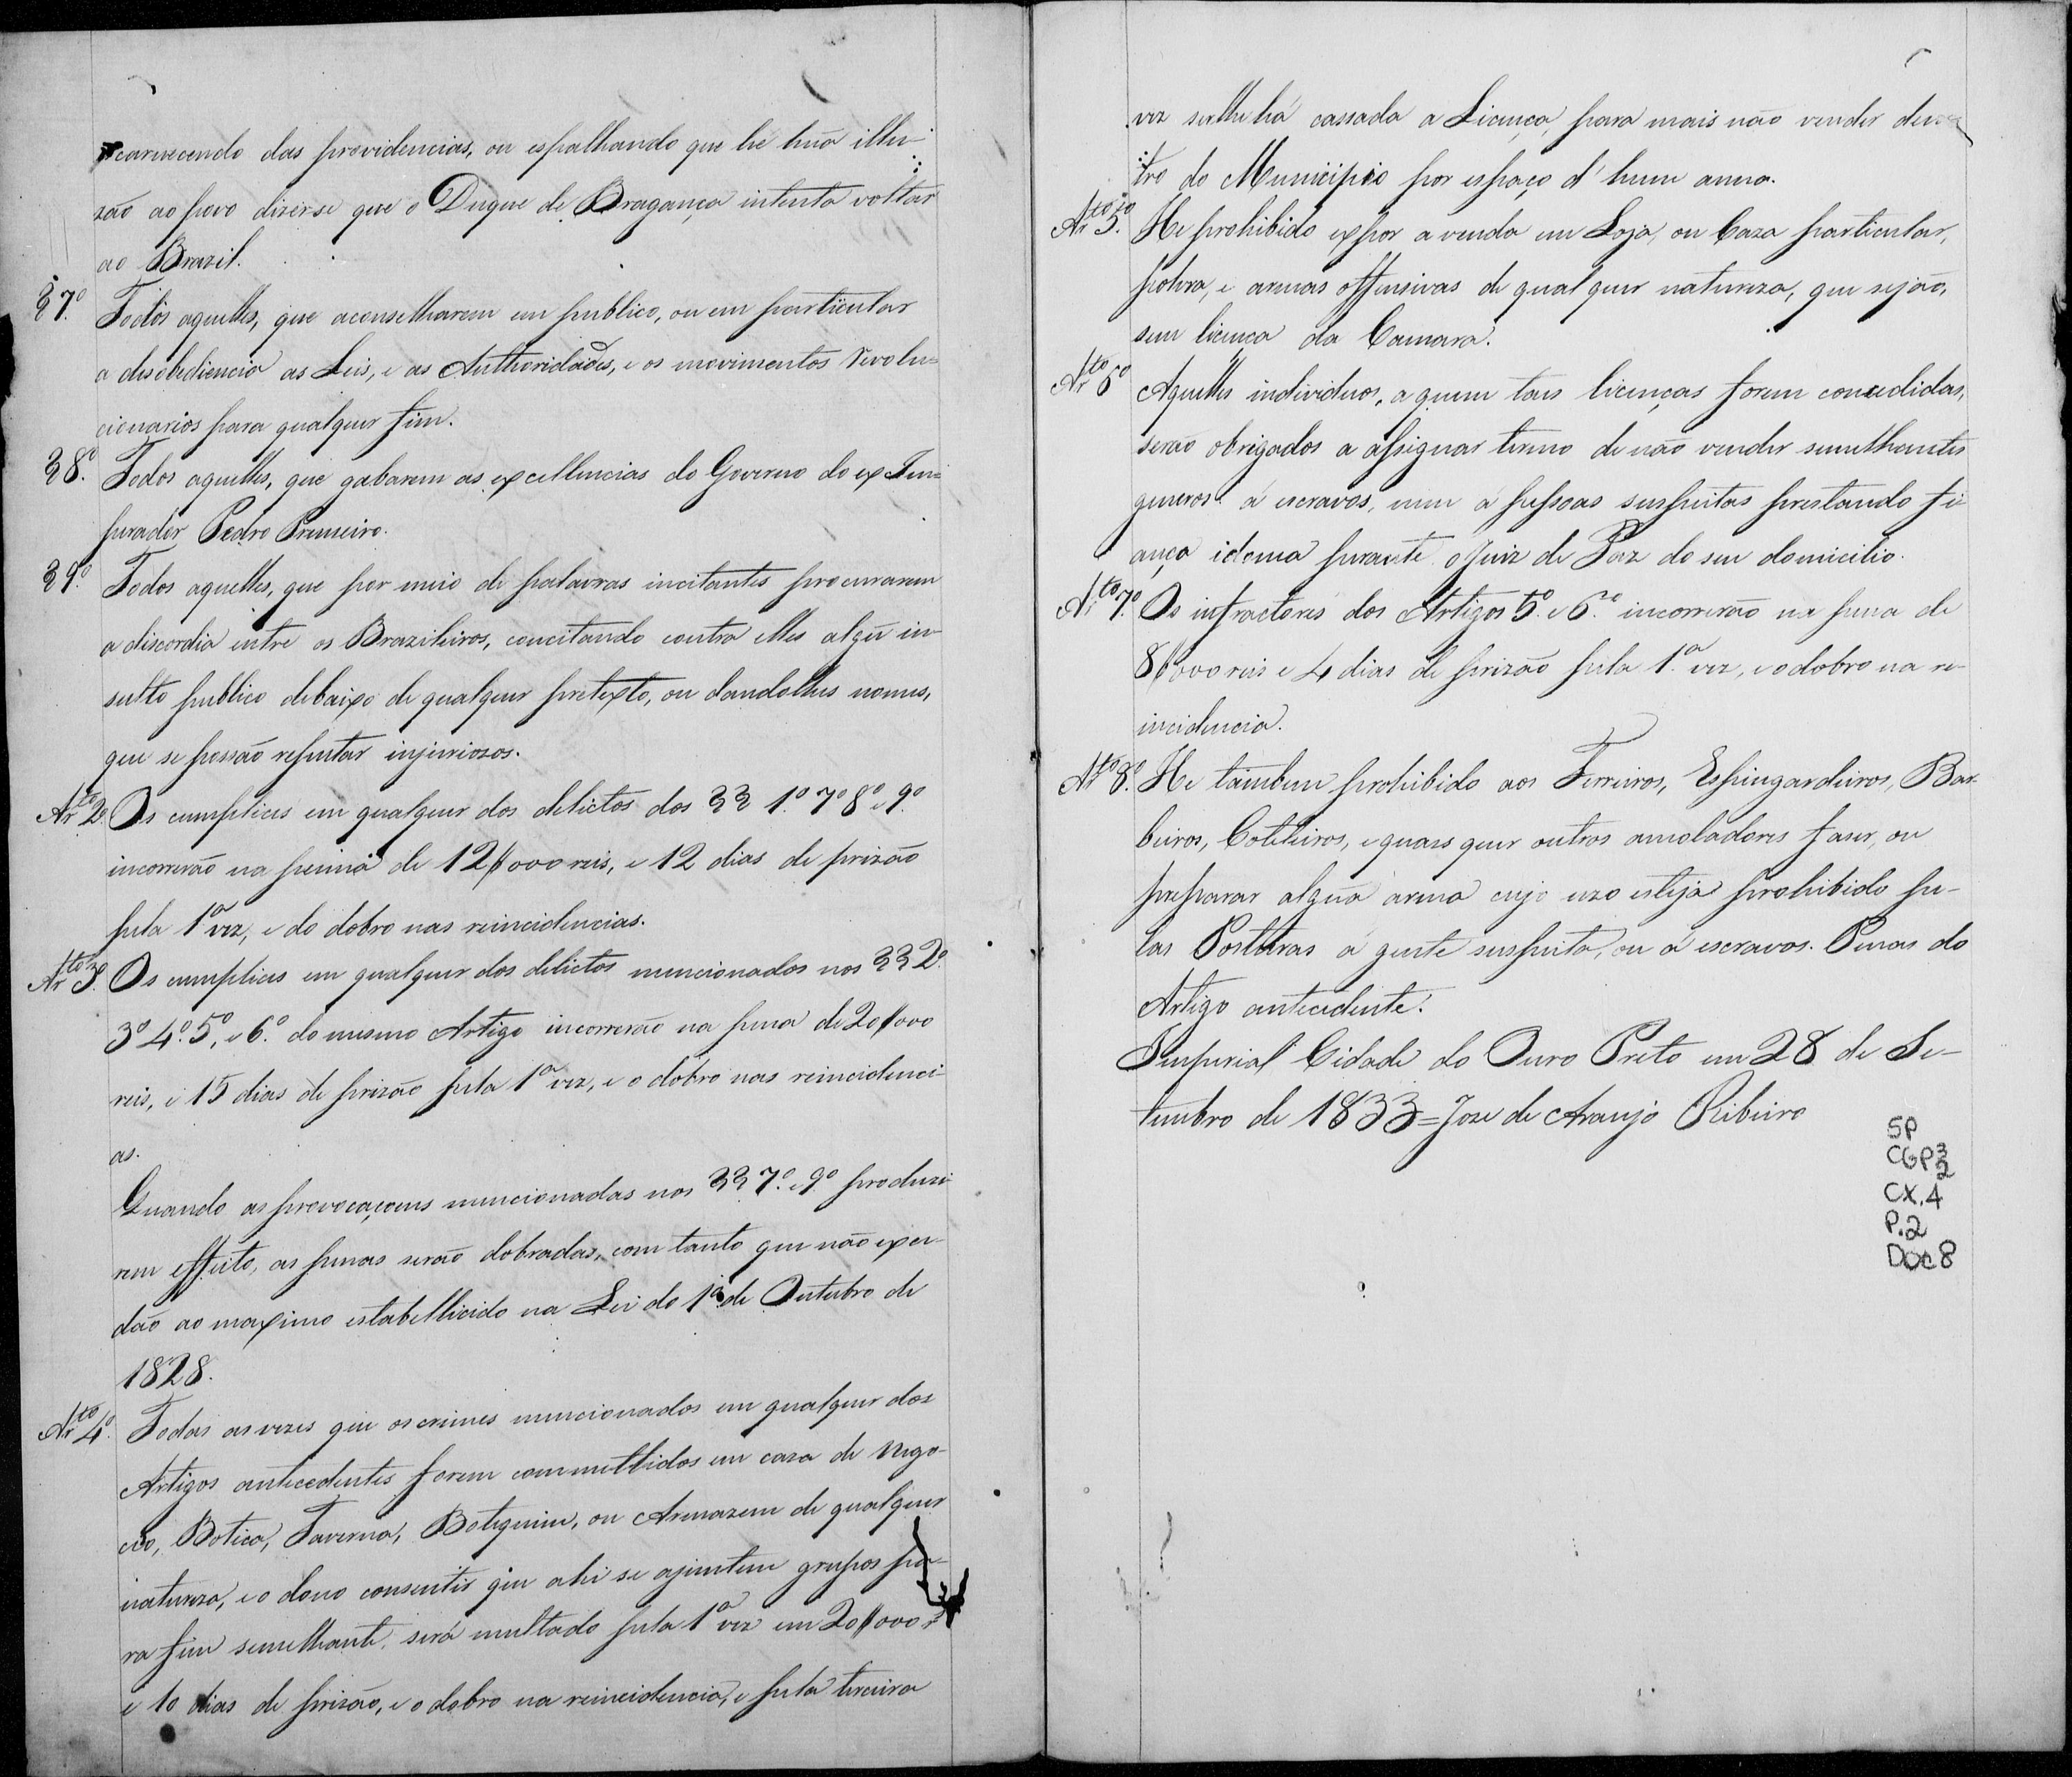 scarnecendo das providencias, ou espalhando que he huã illu-
zão ao povo dizerse que o Duque de Bragança intenta voltar
ao Brazil.
§ 7º. Todos aquelles, que aconselharem em publico, ou em particular
a desobediencia as Leis, e as Authoridades, e os movimentos revolu=
cionarios para qualquer fim.
§ 8º. Todos aquelles, que gabarem as excellencias do Governo do ex Im=
perador Pedro Premeiro.
§ 9º. Todos aquelles, que por meio de palavras incitantes procurarem
a discordia entre os Brazileiros, concitando contra elles algũ in-
sulto publico debaixo de qualquer pretexto, ou dandolhes nomes,
que se possão reputar injuriozos.
Arto 2º. Os cumplices em qualquer dos delictos dos §§ 1º. 7º 8º e 9º
incorrerão na penna de 12$000 reis, e 12 dias de prizão
pela 1ª vez, e do dobro nas reincidencias.
Arto 3º. Os cumplices em qualquer dos delictos mencionados nos §§ 2º.
3º 4º. 5º, e 6º. do mesmo Artigo incorrerão na pena de 20$000
reis, e 15 dias de prizão pela 1ª vez, e o dobro nas reincidenci-
as.
Quando as provocaçoens mencionadas nos §§ 7º. e 9º produzi-
rem effeito, as penas serão dobradas, com tanto que não exce-
dão ao maximo estabellicido na Lei do 1º de Outubro de
1828.
Arto 4º. Todas as vezes que os crimes mencionados em qualquer dos
Artigos antecedentes forem commettidos em caza de Nego-
cio, Botica, Taverna, Botequim, ou Armazem de qualquer
natureza, e o dono consentir que ahi se ajuntem grupos pa-
ra fim semelhante, será multado pela 1ª vez em 20$000 r
e 10 dias de prizão, e o dobro na reincidencia, e pela terceira
vez serlhe há cassada a Licença, para mais não vender den-
tro do Municipio por espaço d'hum anno.
Arto 5º. He prohibido expor a venda em Loja, ou Caza particular,
polvra, e armas offensivas de qualquer natureza, que sejão,
sem licença da Camara.
Arto 6º Aquelles individuos, a quem taes licenças forem concedidas,
serão obrigados a assignar termo de não vender semelhantes
generos á escravos, nem á pessoas suspeitas prestando fi-
ança idonia perante o Juiz de Paz do seu domicilio.
Arto 7º. Os infractores dos Artigos 5º. e 6º. incorrerão na pena de
8$000 reis e 4 dias de prizão pela 1ª. vez, e o dobro na re-
incidencia.
Arto 8º. He tambem prohibido aos Ferreiros, Espingardeiros, Bar-
beiros, Coteleiros, e quaes quer outros amoladores faser, ou
preparar algũa arma cujo uzo esteja prohibido pe-
las Posturas á gente suspeita, ou á escravos. Penas do
Artigo antecedente.
Imperial Cidade do Ouro Preto em 28 de Se-
tembro de 1833 = Joze de Araujo Ribeiro
SP
CGP3
2
CX.4
P.2
Doc 8